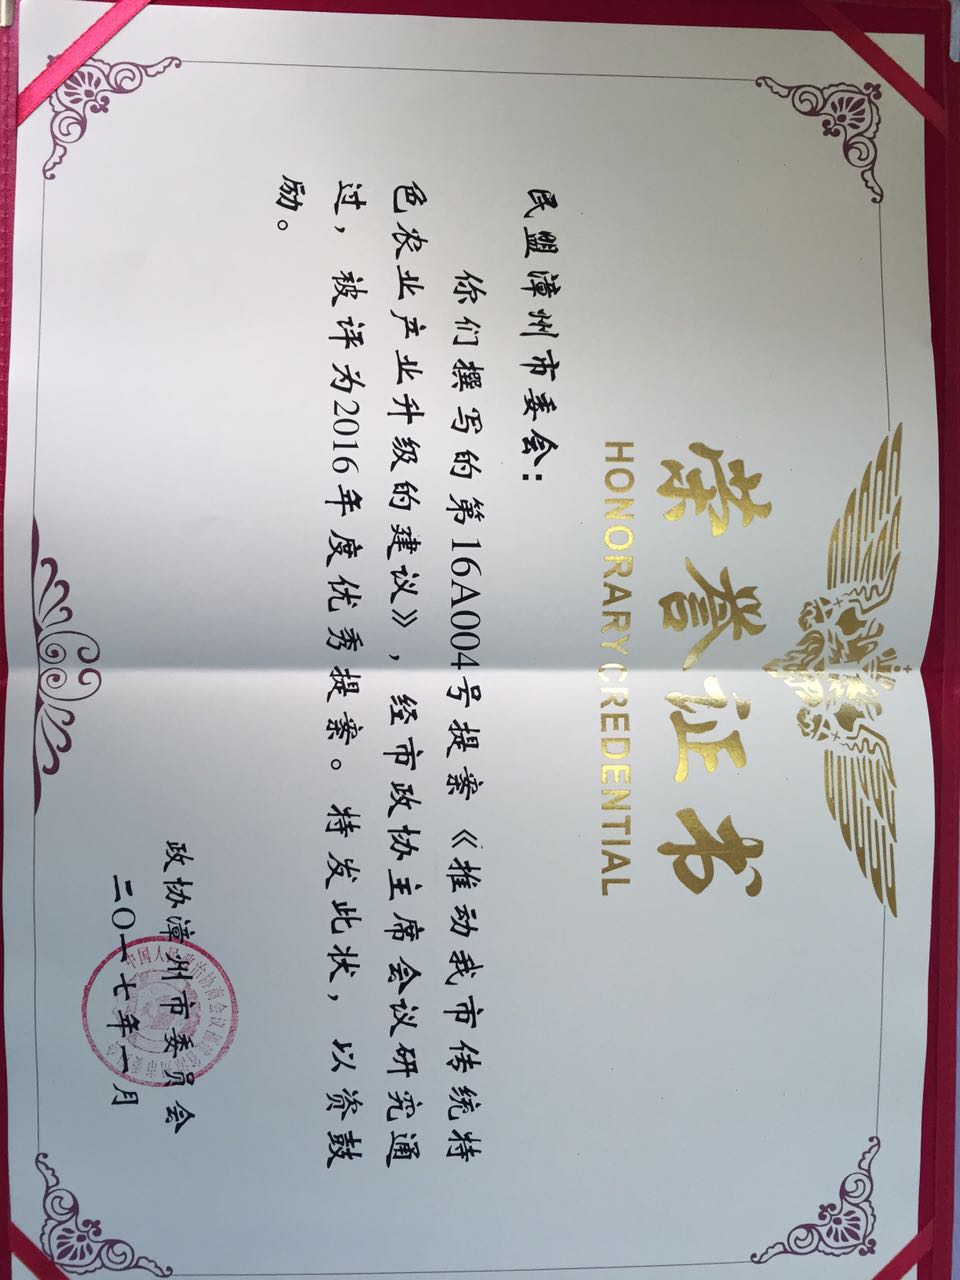 荣誉证书
HONORARY CREDENTIAL
民盟漳州市委会：
你们撰写的第16A004号提案《推动我市传统特
色农业产业升级的建议》，经市政协主席会议研究通
过，被评为2016年度优秀提案。特发此状，以资鼓
励。
政协漳州市委员会
二〇一七年一月